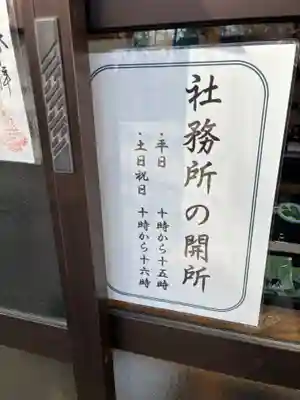 社務所の開所
・平日　十時から十五時
・土日祝日　十時から十六時